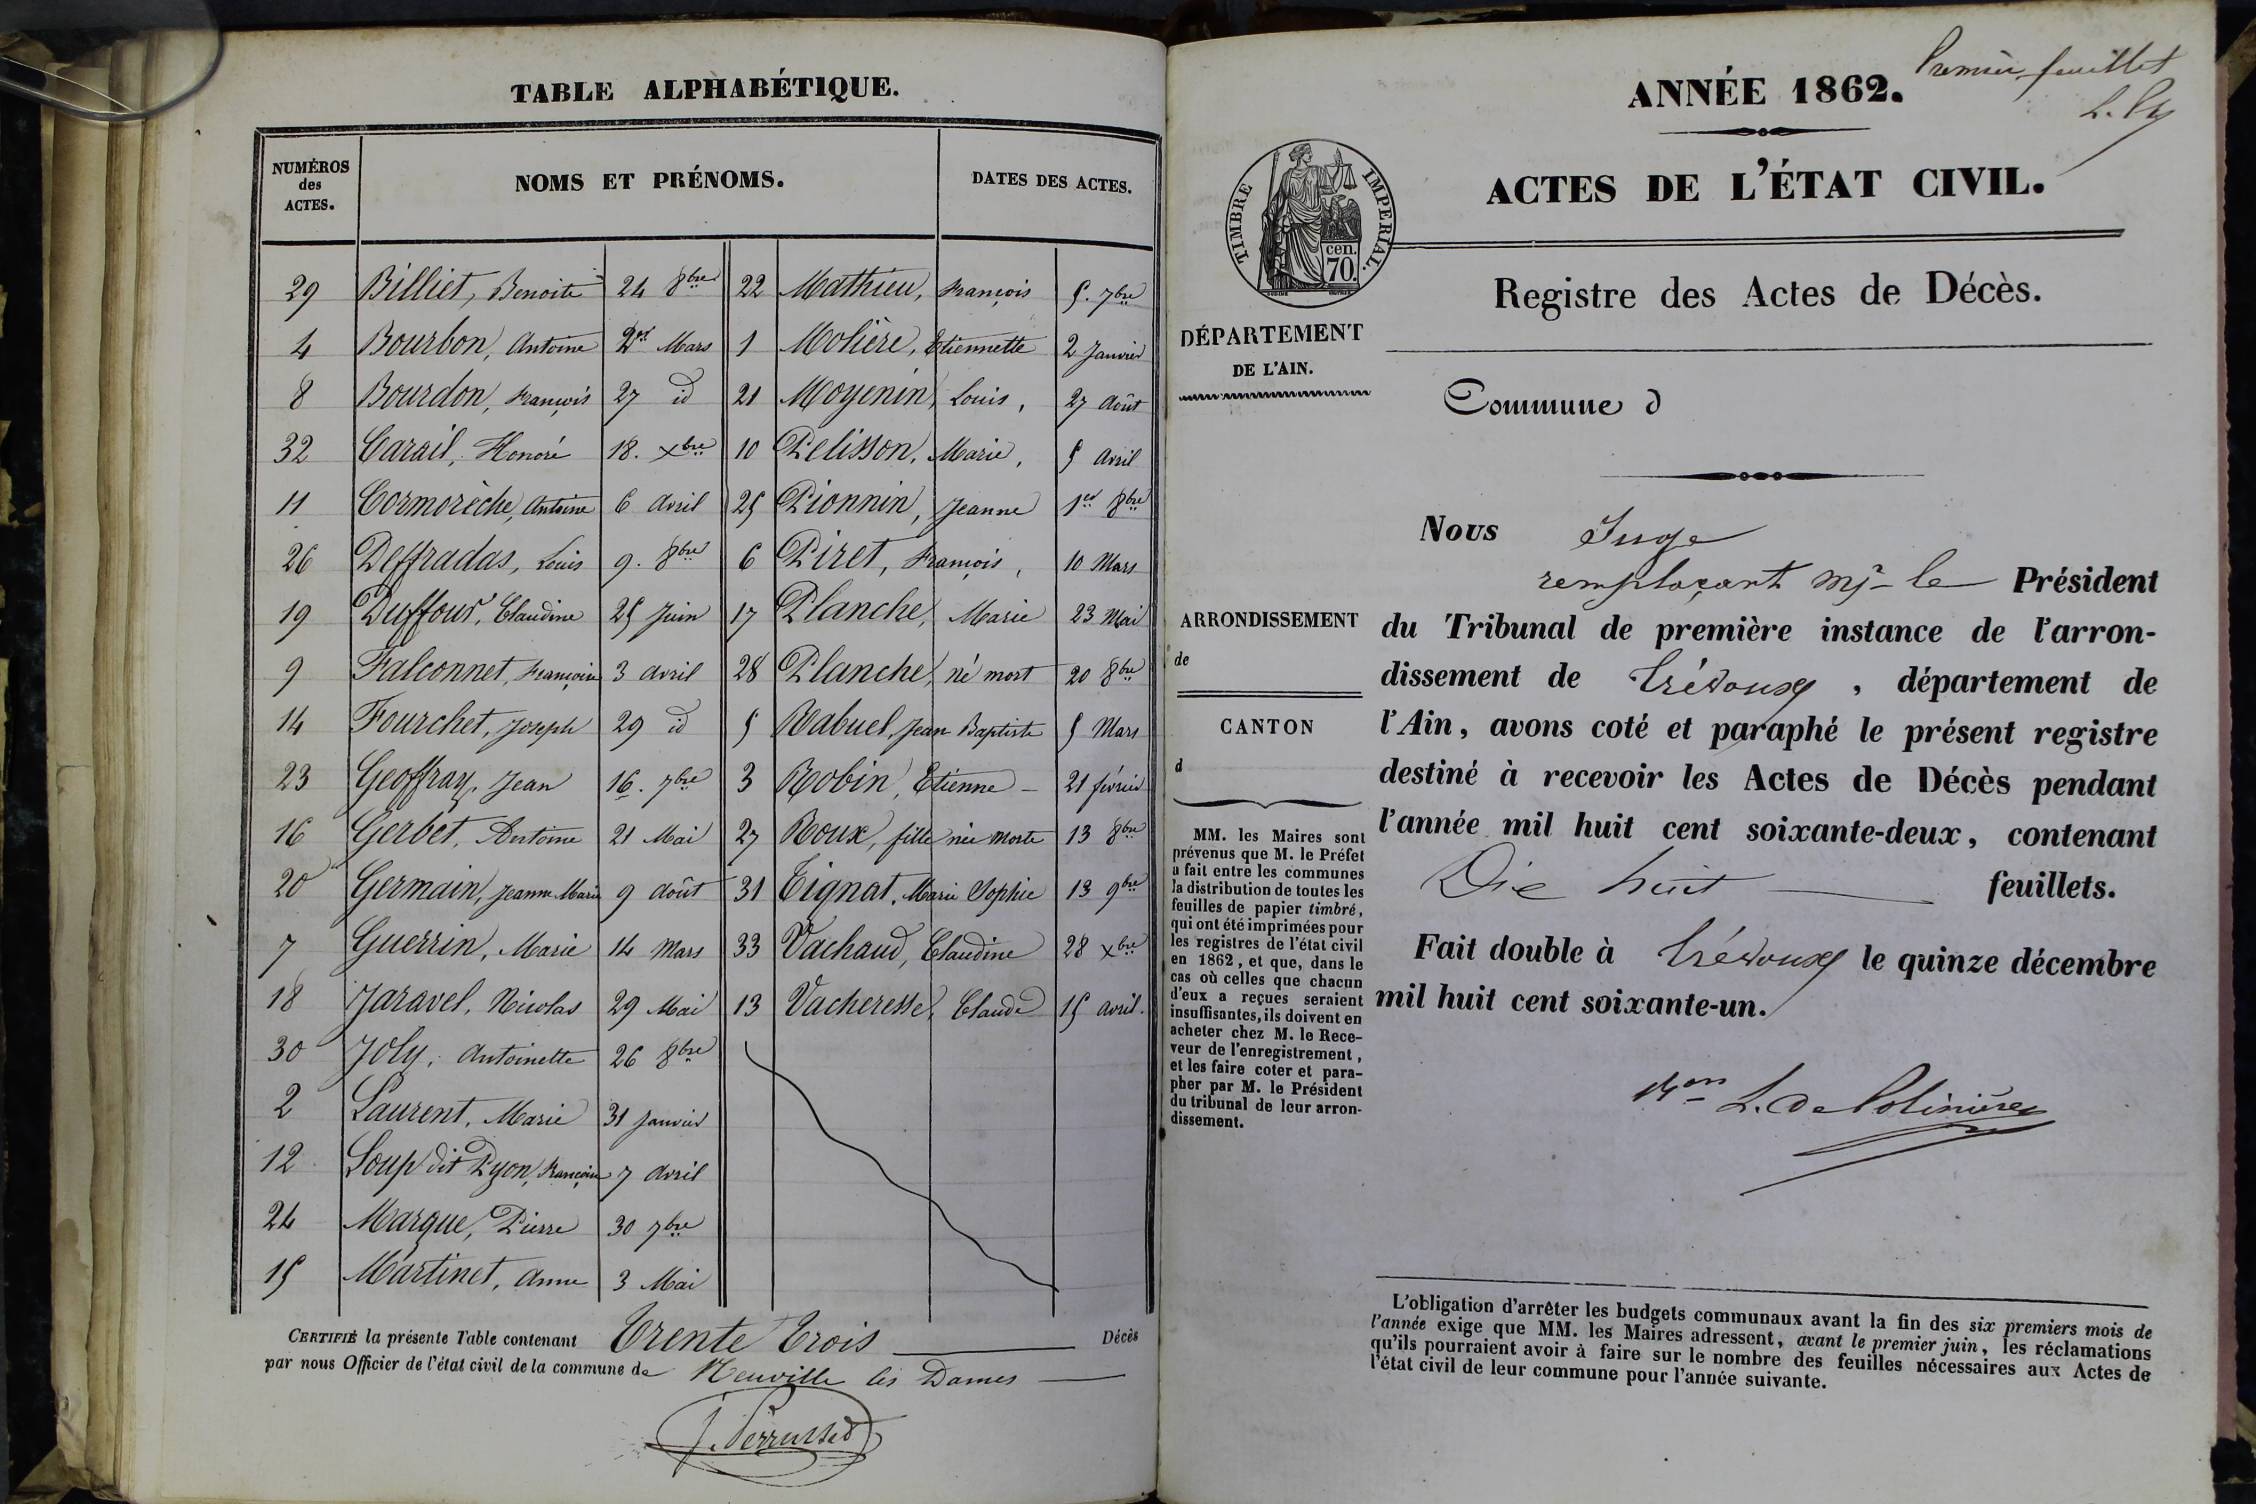 TABLE ALPHABÉTIQUE.
NUMÉROS
des
ACTES.
NOMS ET PRÉNOMS.
DATES DES ACTES.
29 Billiet, Benoite 24 8bre
4 Bourbon, Antoine Mars
8 Bourdon, François 27 id
32 Carail, Honoré 18. xbre
11 Cormorèche, Antoine 6 Avril
26 Deffradas, Louis 9. 8bre
19 Duffour, Claudine 25 Juin
9 Falconnet, Françoise 3 Avril
14 Fourchet, Joseph 29 id
23 Geoffray, Jean 16. 7bre
16 Gerbet, Antoine 21 Mai
20 Germain, Jeanne Marie 9 Août
7 Guerrin, Marie 14 Mars
18 Jaravel, Nicolas 29 Mai
30 Joly, Antoinette 26 8bre
2 Laurent, Marie 31 Janvier
12 Loup dit Dyon, Françoise 7 Avril
24 Marque, Pierre 30 7bre
15 Martinet, Anne 3 Mai
22 Mathieu, François 5. 7bre
1 Molière, Etiennette 2 Janvier
21 Moyenin, Louis, 27 Août
10 Pelisson, Marie, 5 Avril
25 Pionnin, Jeanne 1er 8bre
6 Piret, François, 10 Mars
17 Planche, Marie 23 Mai
28 Planche, né mort 20 8bre
5 Rabuel, Jean Baptiste 5 Mars
3 Robin, Etienne 21 février
27 Roux, fille née morte 13 8bre
31 Tignat, Marie Sophie 13 9bre
33 Vachaud, Claudine 28 xbre
13 Vacheresse, Claude 15 Avril.
CERTIFIÉ la présente Table contenant Trente Trois Décès
par nous Officier de l'état civil de la commune de Neuville les Dames
J. Perrusset
Premier feuillet
L. Py
ANNÉE 1862.
ACTES DE L'ÉTAT CIVIL.
TIMBRE IMPÉRIAL.
cen.
70.
Registre des Actes de Décès.
DÉPARTEMENT
DE L'AIN.
Commune d
ARRONDISSEMENT
de
CANTON
d
MM. les Maires sont
prévenus que M. le Préfet
a fait entre les communes
la distribution de toutes les
feuilles de papier timbré,
qui ont été imprimées pour
les registres de l'état civil
en 1862, et que, dans le
cas où celles que chacun
d'eux a reçues seraient
insuffisantes, ils doivent en
acheter chez M. le Rece-
veur de l'enregistrement,
et les faire coter et para-
pher par M. le Président
du tribunal de leur arron-
dissement.
Nous Juge
remplaçant Mr le Président
du Tribunal de première instance de l'arron-
dissement de Trévoux, département de
l'Ain, avons coté et paraphé le présent registre
destiné à recevoir les Actes de Décès pendant
l'année mil huit cent soixante-deux, contenant
Dix huit feuillets.
Fait double à Trévoux le quinze décembre
mil huit cent soixante-un.
L. De Polinière
L'obligation d'arrêter les budgets communaux avant la fin des six premiers mois de
l'année exige que MM. les Maires adressent, avant le premier juin, les réclamations
qu'ils pourraient avoir à faire sur le nombre des feuilles nécessaires aux Actes de
l'état civil de leur commune pour l'année suivante.